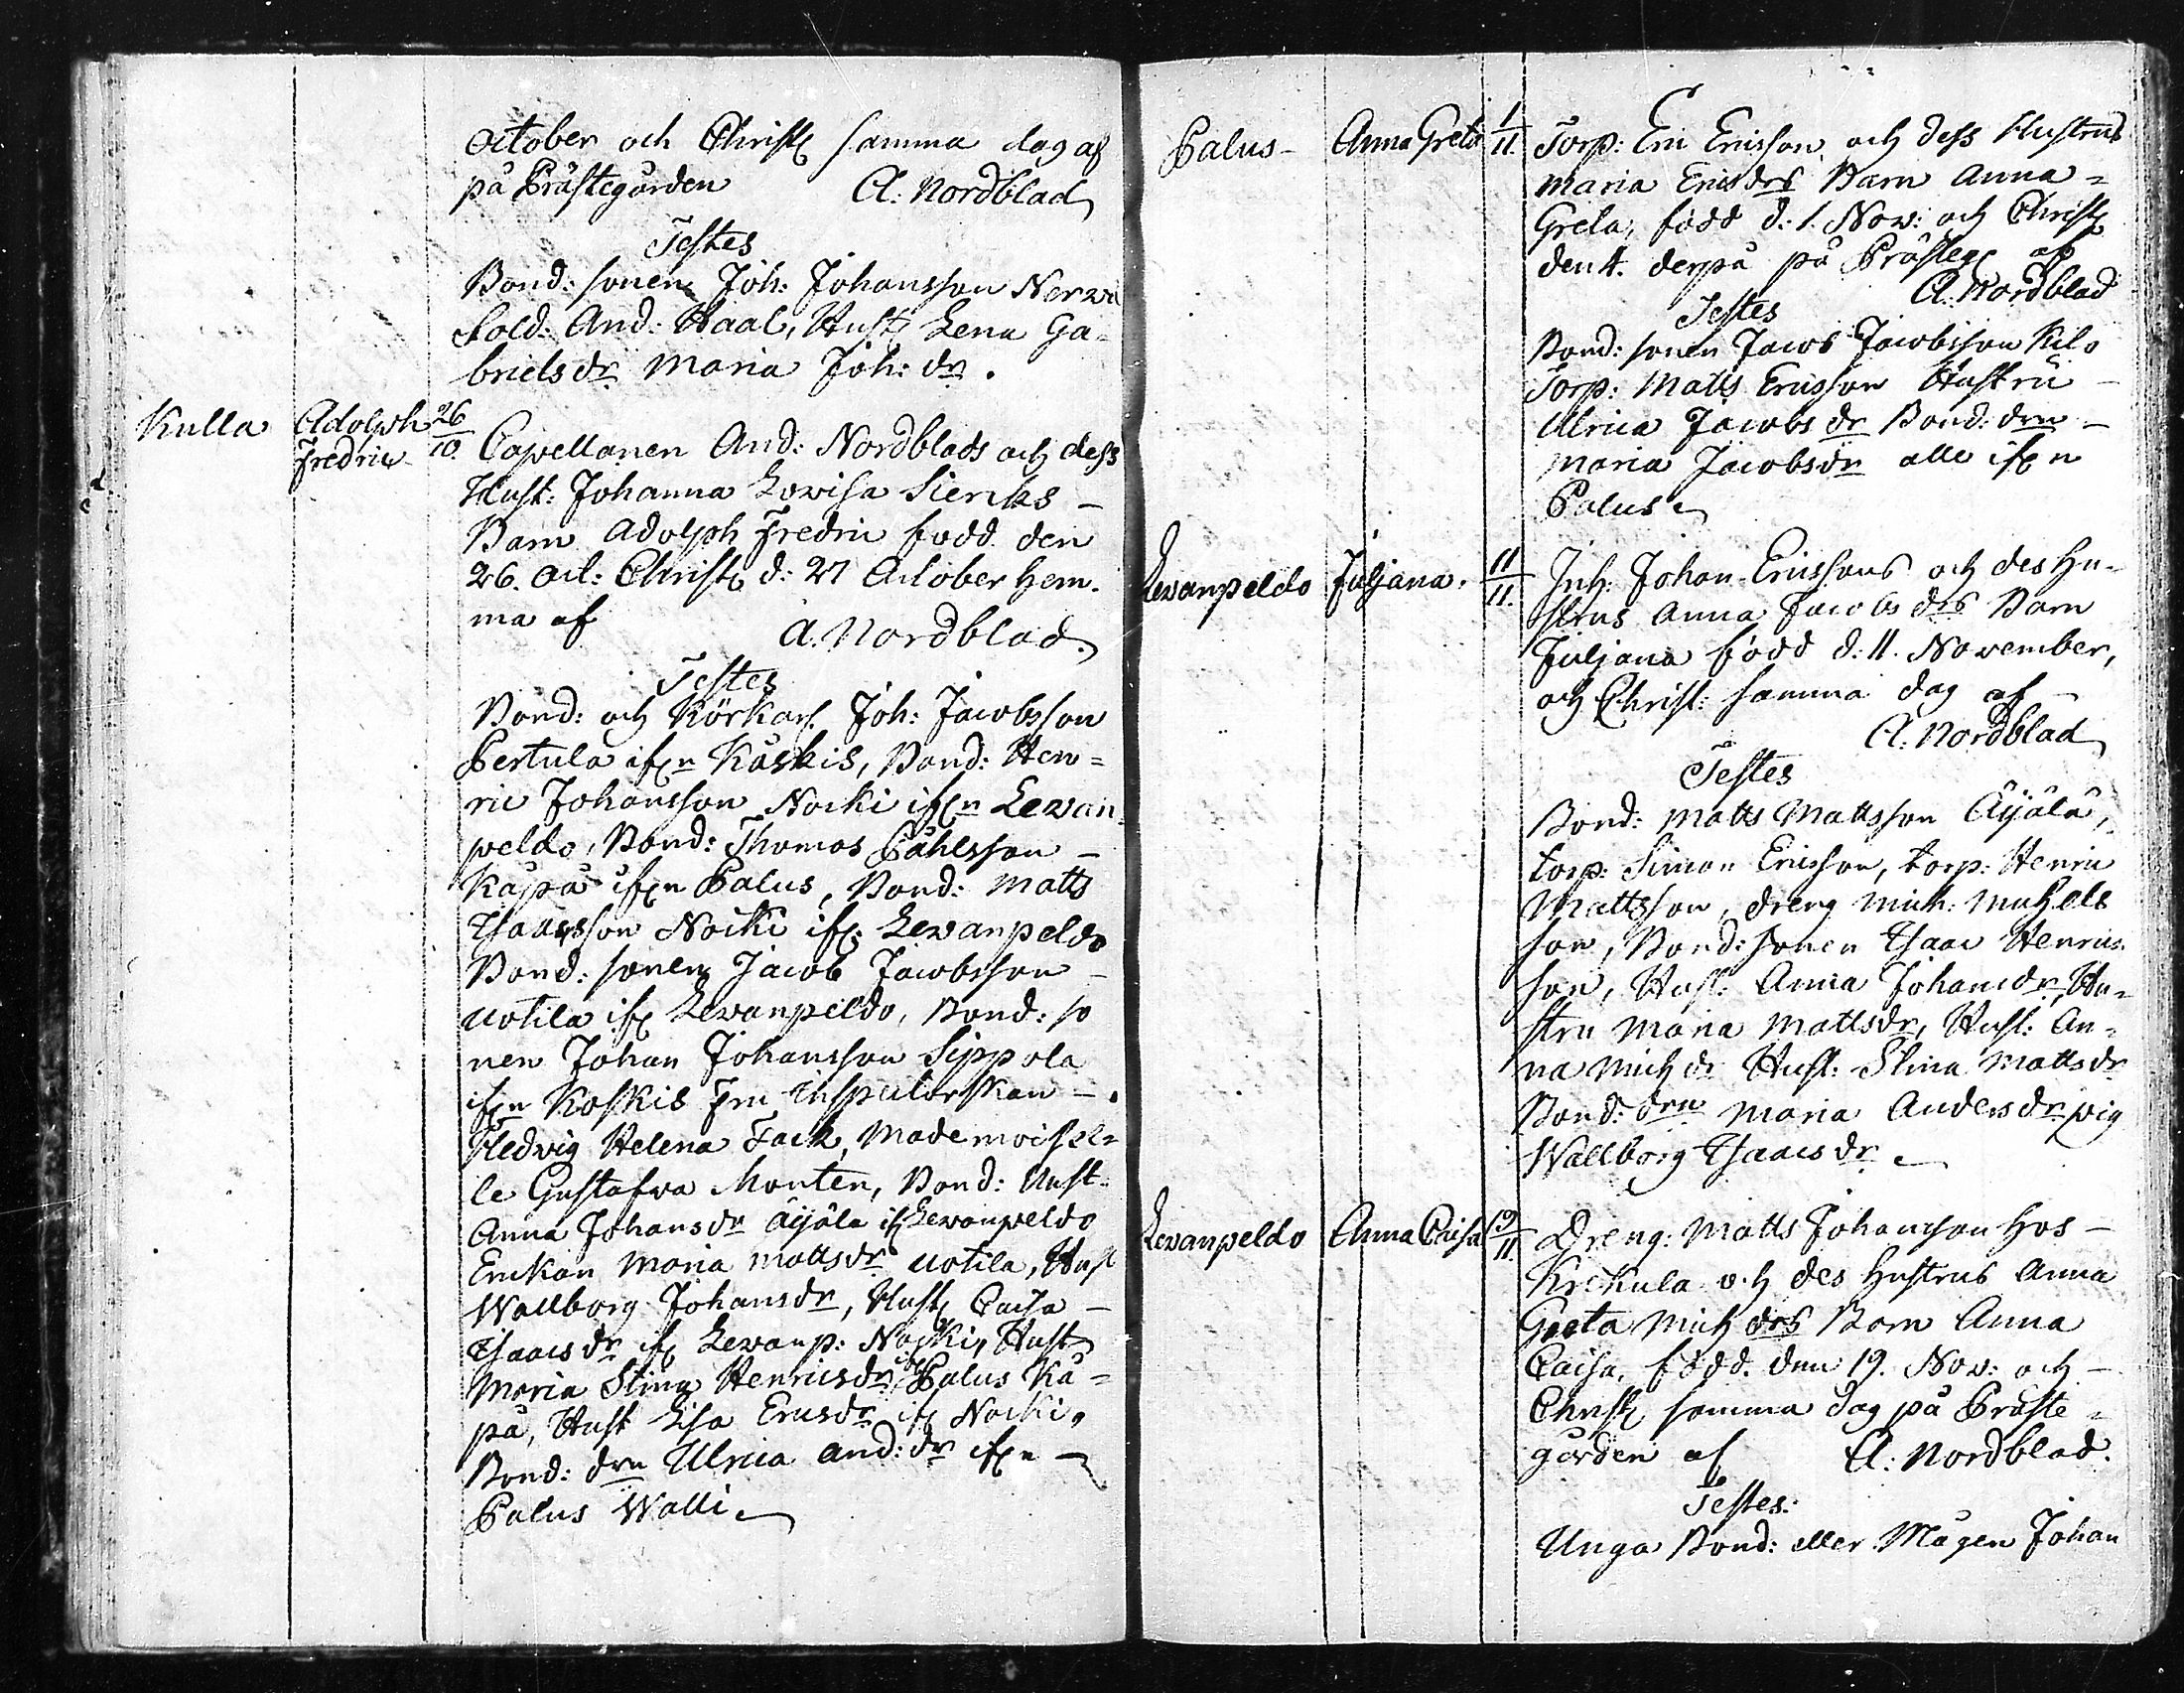 October och Christ samma dag af
på Prästegården A: Nordblad
Testes
Bond: sonen Joh: Johansson Nerwä
Sold: And: Haal, Hust Lena Ga-
brielsdr Maria Joh: dr.
Kulla Adolph Fredric 26/10. Capellanen And: Nordblads och dess
Hust: Johanna Lovisa Sierks -
Barn Adolph Fredric född den
26. Oct: Christ d: 27 October hem-
ma af
A. Nordblad.
Testes
Bond: och Körkarl Joh: Jacobsson
Pertula ifrn Kåskis, Bond: Hen=
ric Johansson Nocki ifrn Lewan-
peldo, Bond: Thomas Påhlsson -
Kåpå ifrn Palus, Bond: Matts
Isaacsson Nocki ifr Lewanpeldo
Bond: sonen Jacob Jacobsson -
Uotila ifr Lewanpeldo, Bond: so
nen Johan Johansson Sippola
ifrn Koskis Fru Inspectorskan -
Hedwig Helena Tack, Mademoisel=
le Gustafva Monten, Bond: Hust-
Anna Johansdr Äijälä ifr Lewanpeldo
Enkan Maria Mattsdr Uotila, Hust
Wallborg Johansdr, Hust Caisa -
Isaacsdr ifr Lewanp: Nocki, Hust
Maria Stina Henricsdr ifr Palus Kå=
på, Hust Lisa Ericsdr ifr Nocki,
Bond: drn Ulrica And: dr ifrn -
Palus Walli
Palus - Anna Greta 1/11 Torp: Eric Ericsson och dess Hustrus
Maria Ericsdrs Barn Anna =
Greta, född d: 1. Nov: och Christ
den 4. derpå på Prästeg af
A. Nordblad
Testes
Bond: sonen Jacob Jacobsson Kilo
Torp: Matts Ericsson Hustru -
Ulrica Jacobsdr Bond: drn -
Maria Jacobsdr alle ifrn
Palus
Lewanpeldo Juljana. 11/11. Inh: Johan Ericssons och des Hu-
strus Anna Jacobsdrs Barn
Juljana född d: 11. November,
och Christ: samma dag af -
A: Nordblad
Testes
Bond: Matts Mattsson Äijälä,
torp: Simon Ericsson, torp: Henric
Mattsson, dreng Mich: Michels
son, Bond: sonen Isaac Henrics
son, Hust: Anna Johansdr, Hu=
stru Maria Mattsdr, Hust: An=
na Michdr Hust: Stina Mattsdr
Bond: drn Maria Andersdr pig
Wallborg Isaacsdr
Lewanpeldo Anna Caisa 19/11. Dreng: Matts Johansson hos -
Krekula och des hustrus Anna
Greta Mich drs Barn Anna
Caisa, född den 19. Nov: och -
Christ samma dag på Präste =
gården af A: Nordblad.
Testes:
Unga Bond: eller Mågen Johan